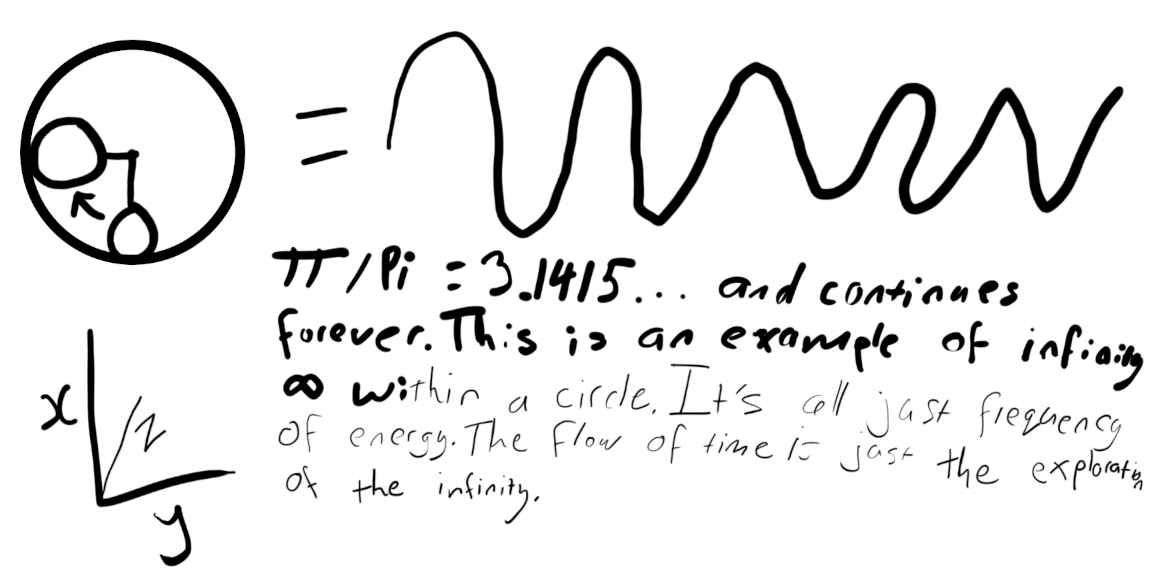 =
π/Pi = 3.1415... and continues
forever. This is an example of infinity
∞ within a circle. It's all just frequency
of energy. The flow of time is just the exploration
of the infinity.
x
z
y